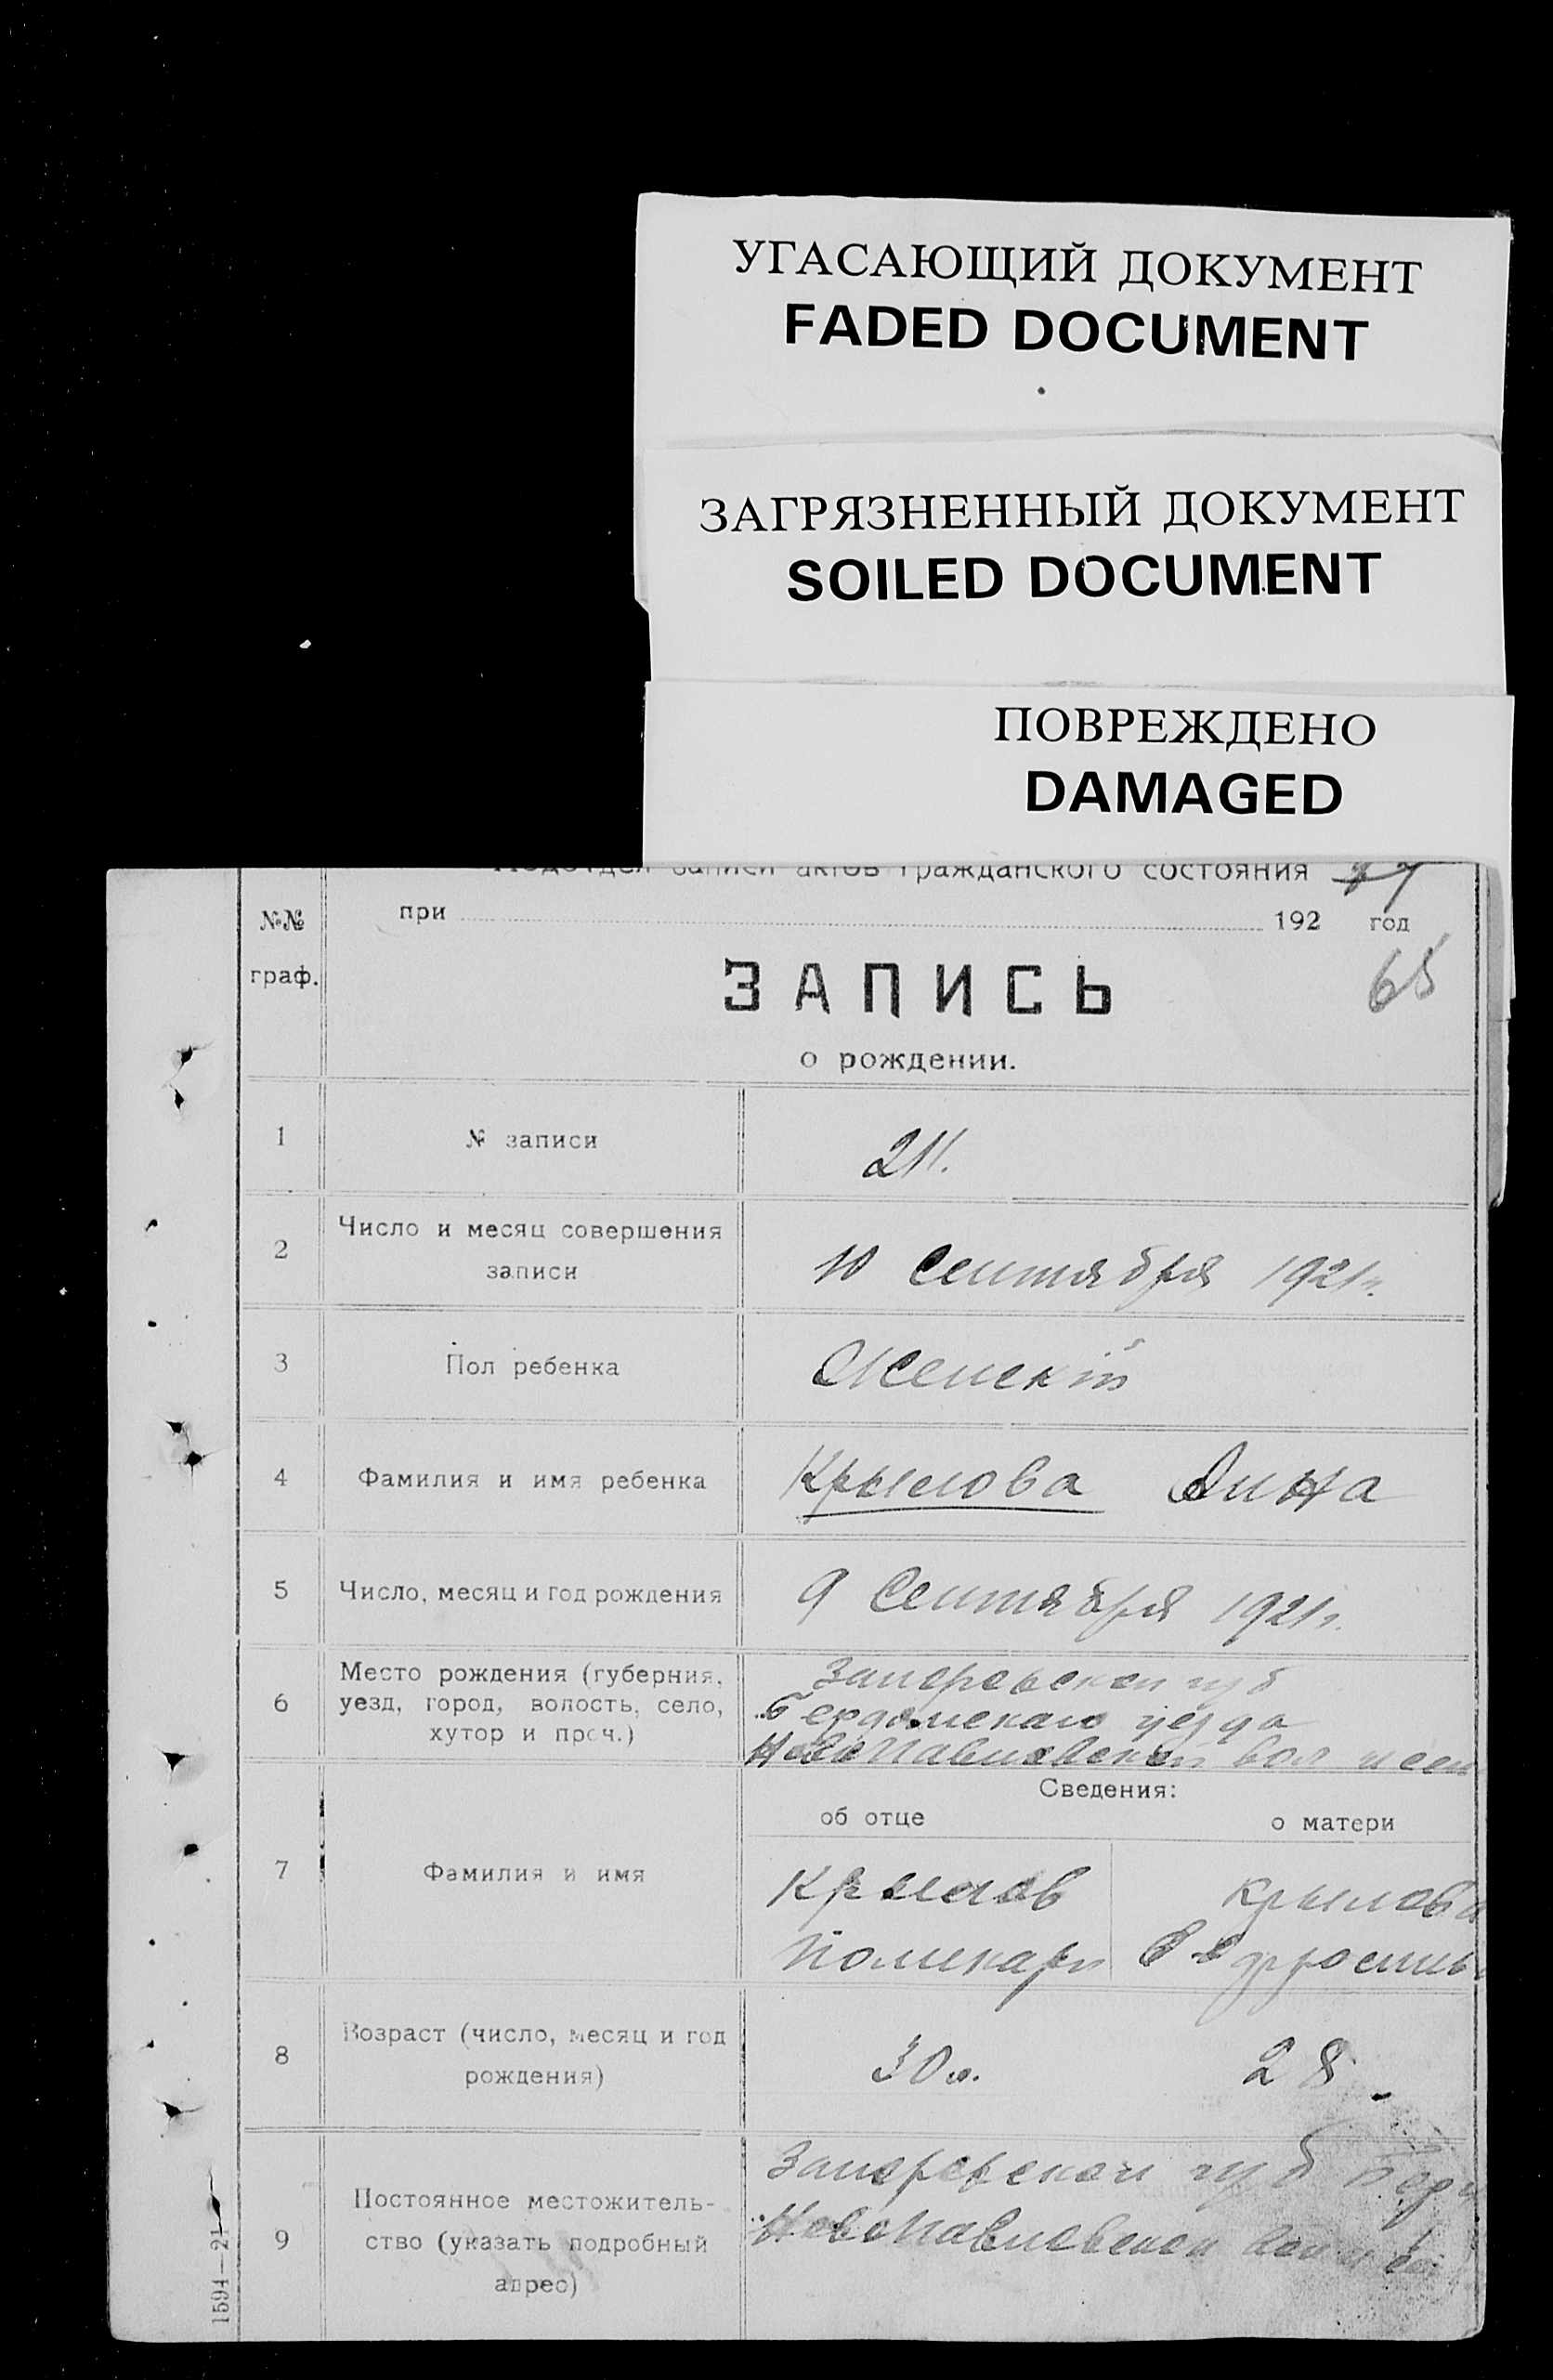 УГАСАЮЩИЙ ДОКУМЕНТ
FADED DOCUMENT
ЗАГРЯЗНЕННЫЙ ДОКУМЕНТ
SOILED DOCUMENT
ПОВРЕЖДЕНО
DAMAGED
Подотдел записи актов гражданского состояния
№№ граф.
при 192 год
65
ЗАПИСЬ
о рождении.
1 № записи 211.
2 Число и месяц совершения
записи
10 Сентября 1921г.
3 Пол ребенка Женскій
4 Фамилия и имя ребенка Крылова Анна
5 Число, месяц и год рождения 9 Сентября 1921г.
6 Место рождения (губерния,
уезд, город, волость, село,
хутор и проч.)
Запорожской губ
Бердянскаго уезда
НовоПавловской вол и села
Сведения:
об отце о матери
7 Фамилия и имя
Крылов
Поликарп
Крылова
8 Возраст (число, месяц и год
рождения)
30 л. 28
9 Постоянное местожитель-
ство (указать подробный
адрес)
Запорожской губ Берд
НовоПавловской
1594—21